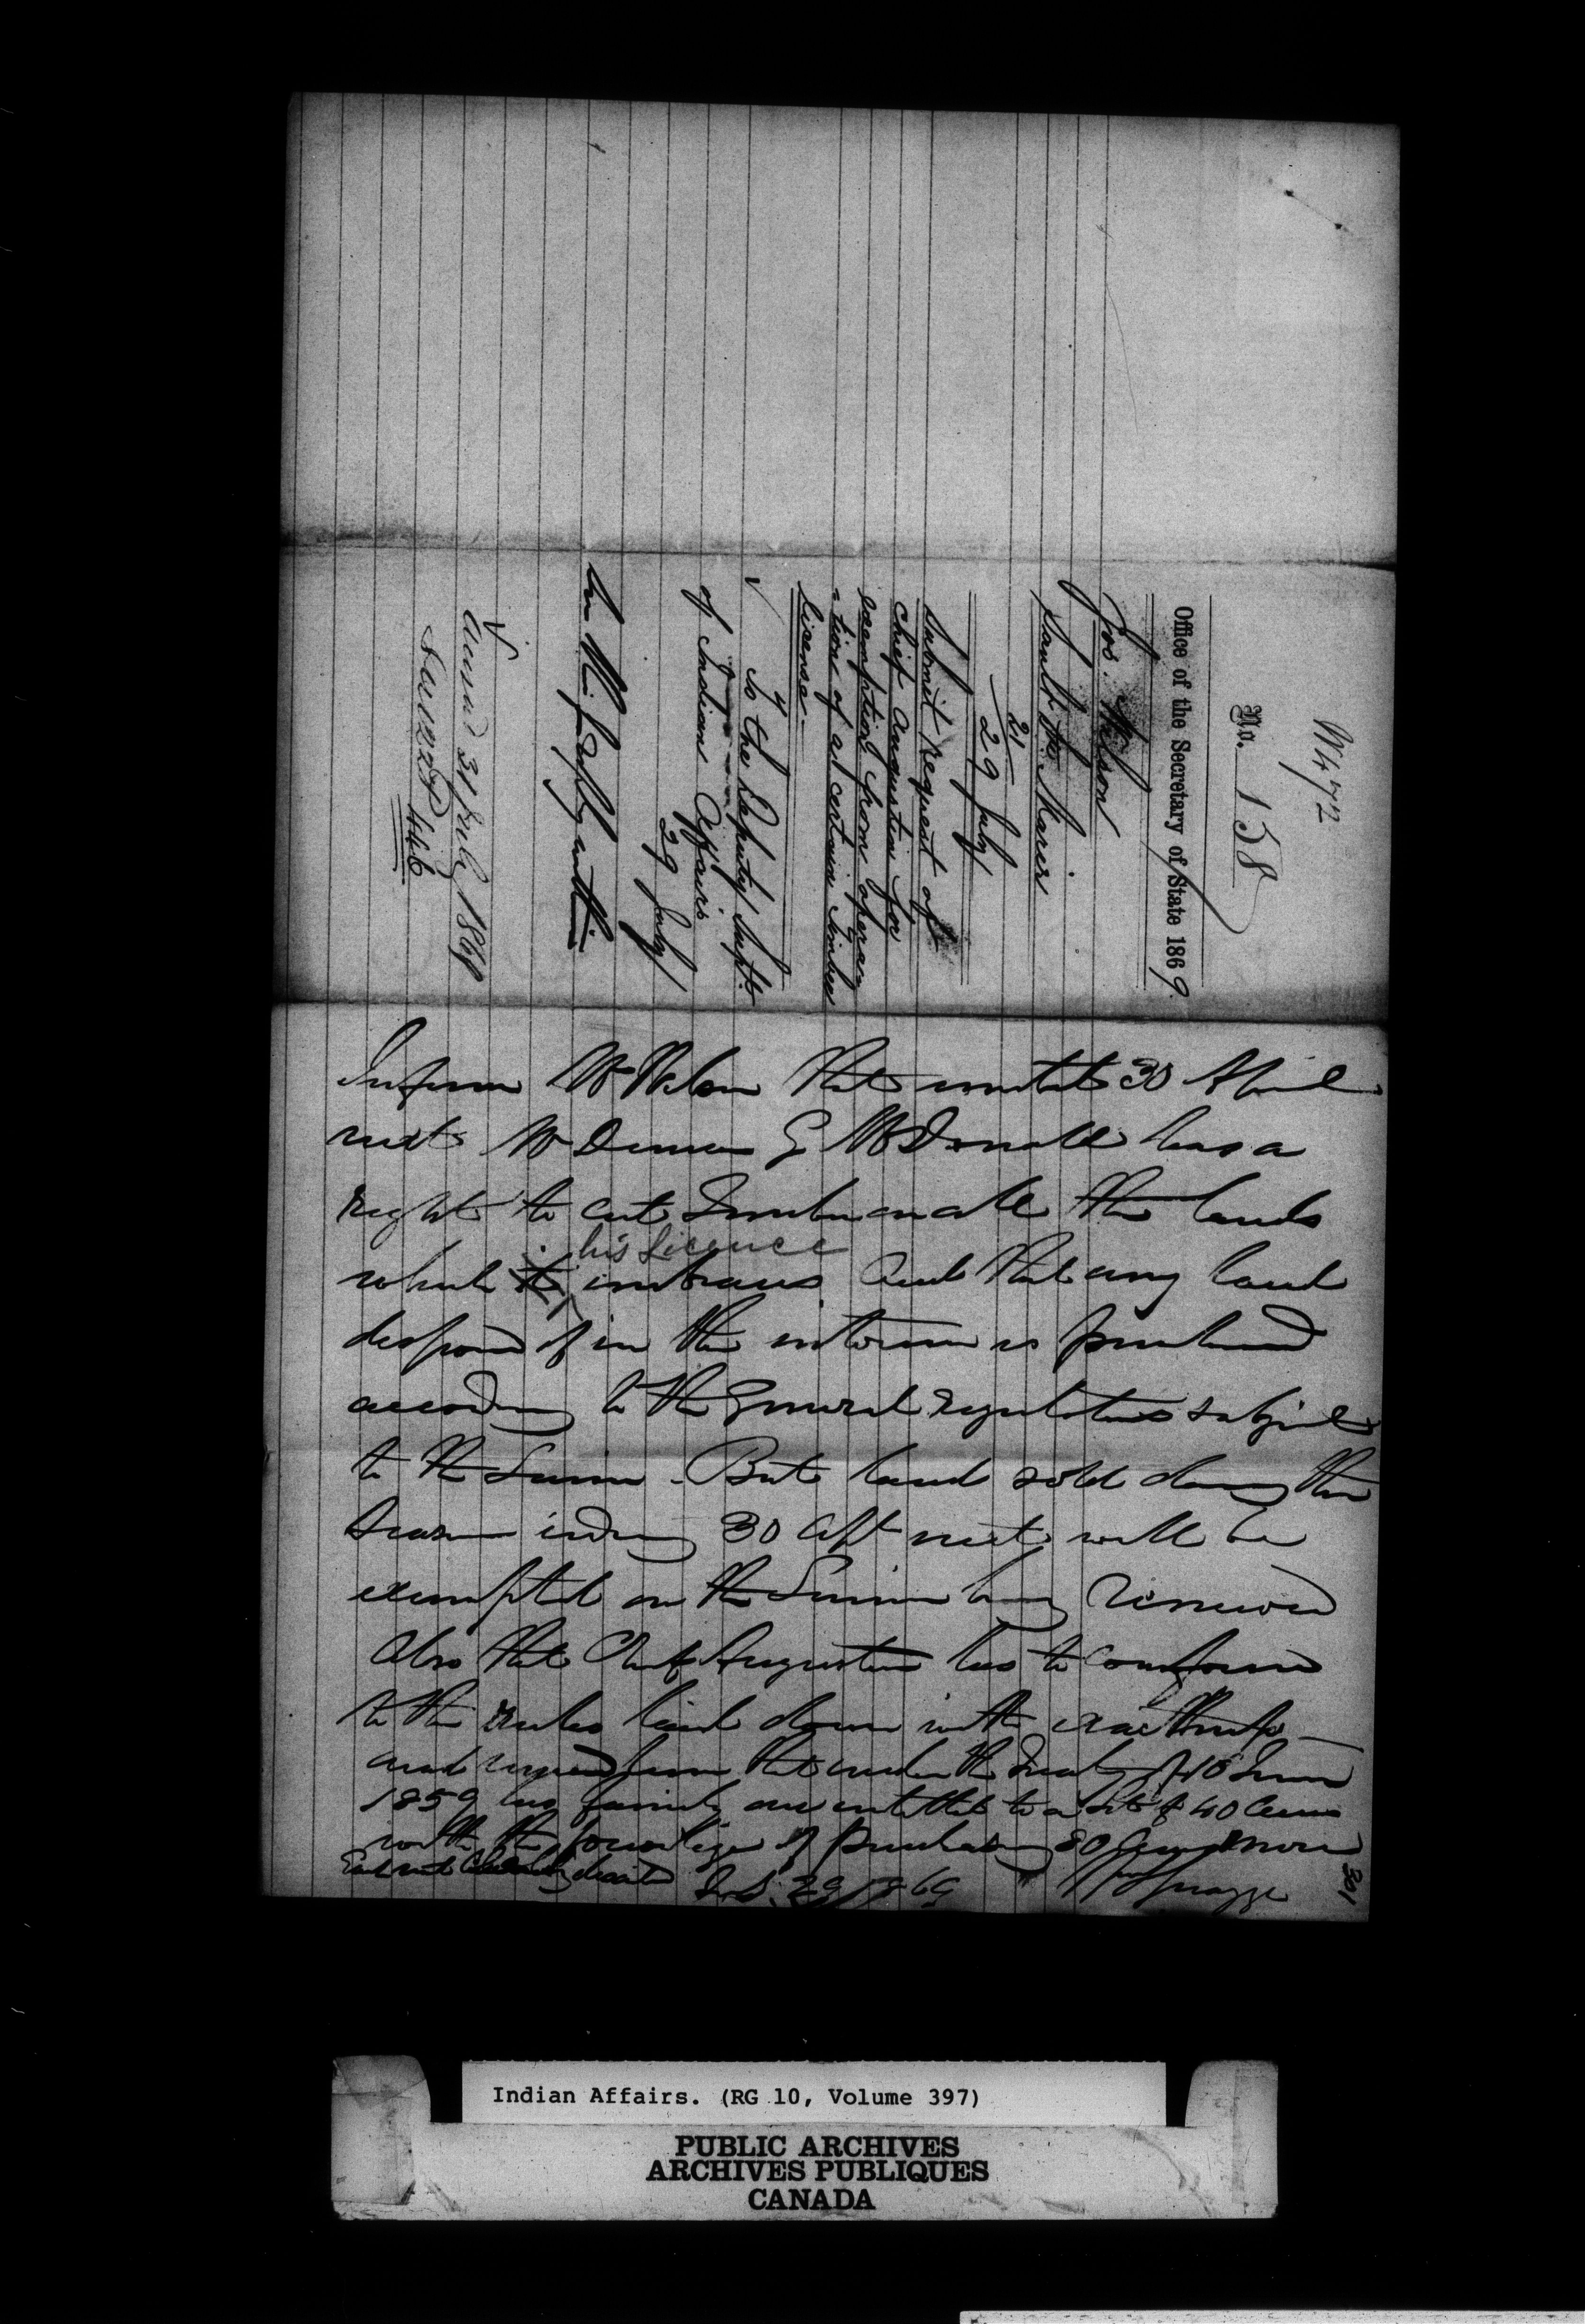 W472
No. 158
Office of the Secretary of State 1869.
Jos. Wilson
Sault Ste. Marie
21
29 July
Submit request of
Chief Augustin for
exemption from opera-
-tion of a certain timber
license.
To the Deputy Supt.
of Indian Affairs
29 July
31 July 1869
446
Inform Mr Wilson that until 30 April
next Mr Duncan G McDonald has a
right to cut Timber on all the lands
his Licence
which embraces and that any land
disposed of in the interim is purchased
according to the General regulations subject
to the License. But land sold during the
Season ending 30 April next will be
exempted on the License being renewed
Also that Chief Augustin has to conform
to the rules laid down with
and remind him that under the Treaty of 10 June
1859 his family are entitled to a lot of 40 acres
with the privilege of purchasing 80 Acres more
29 / 69 Spragge
301
Indian Affairs. (RG 10, Volume 397)
PUBLIC ARCHIVES
ARCHIVES PUBLIQUES
CANADA